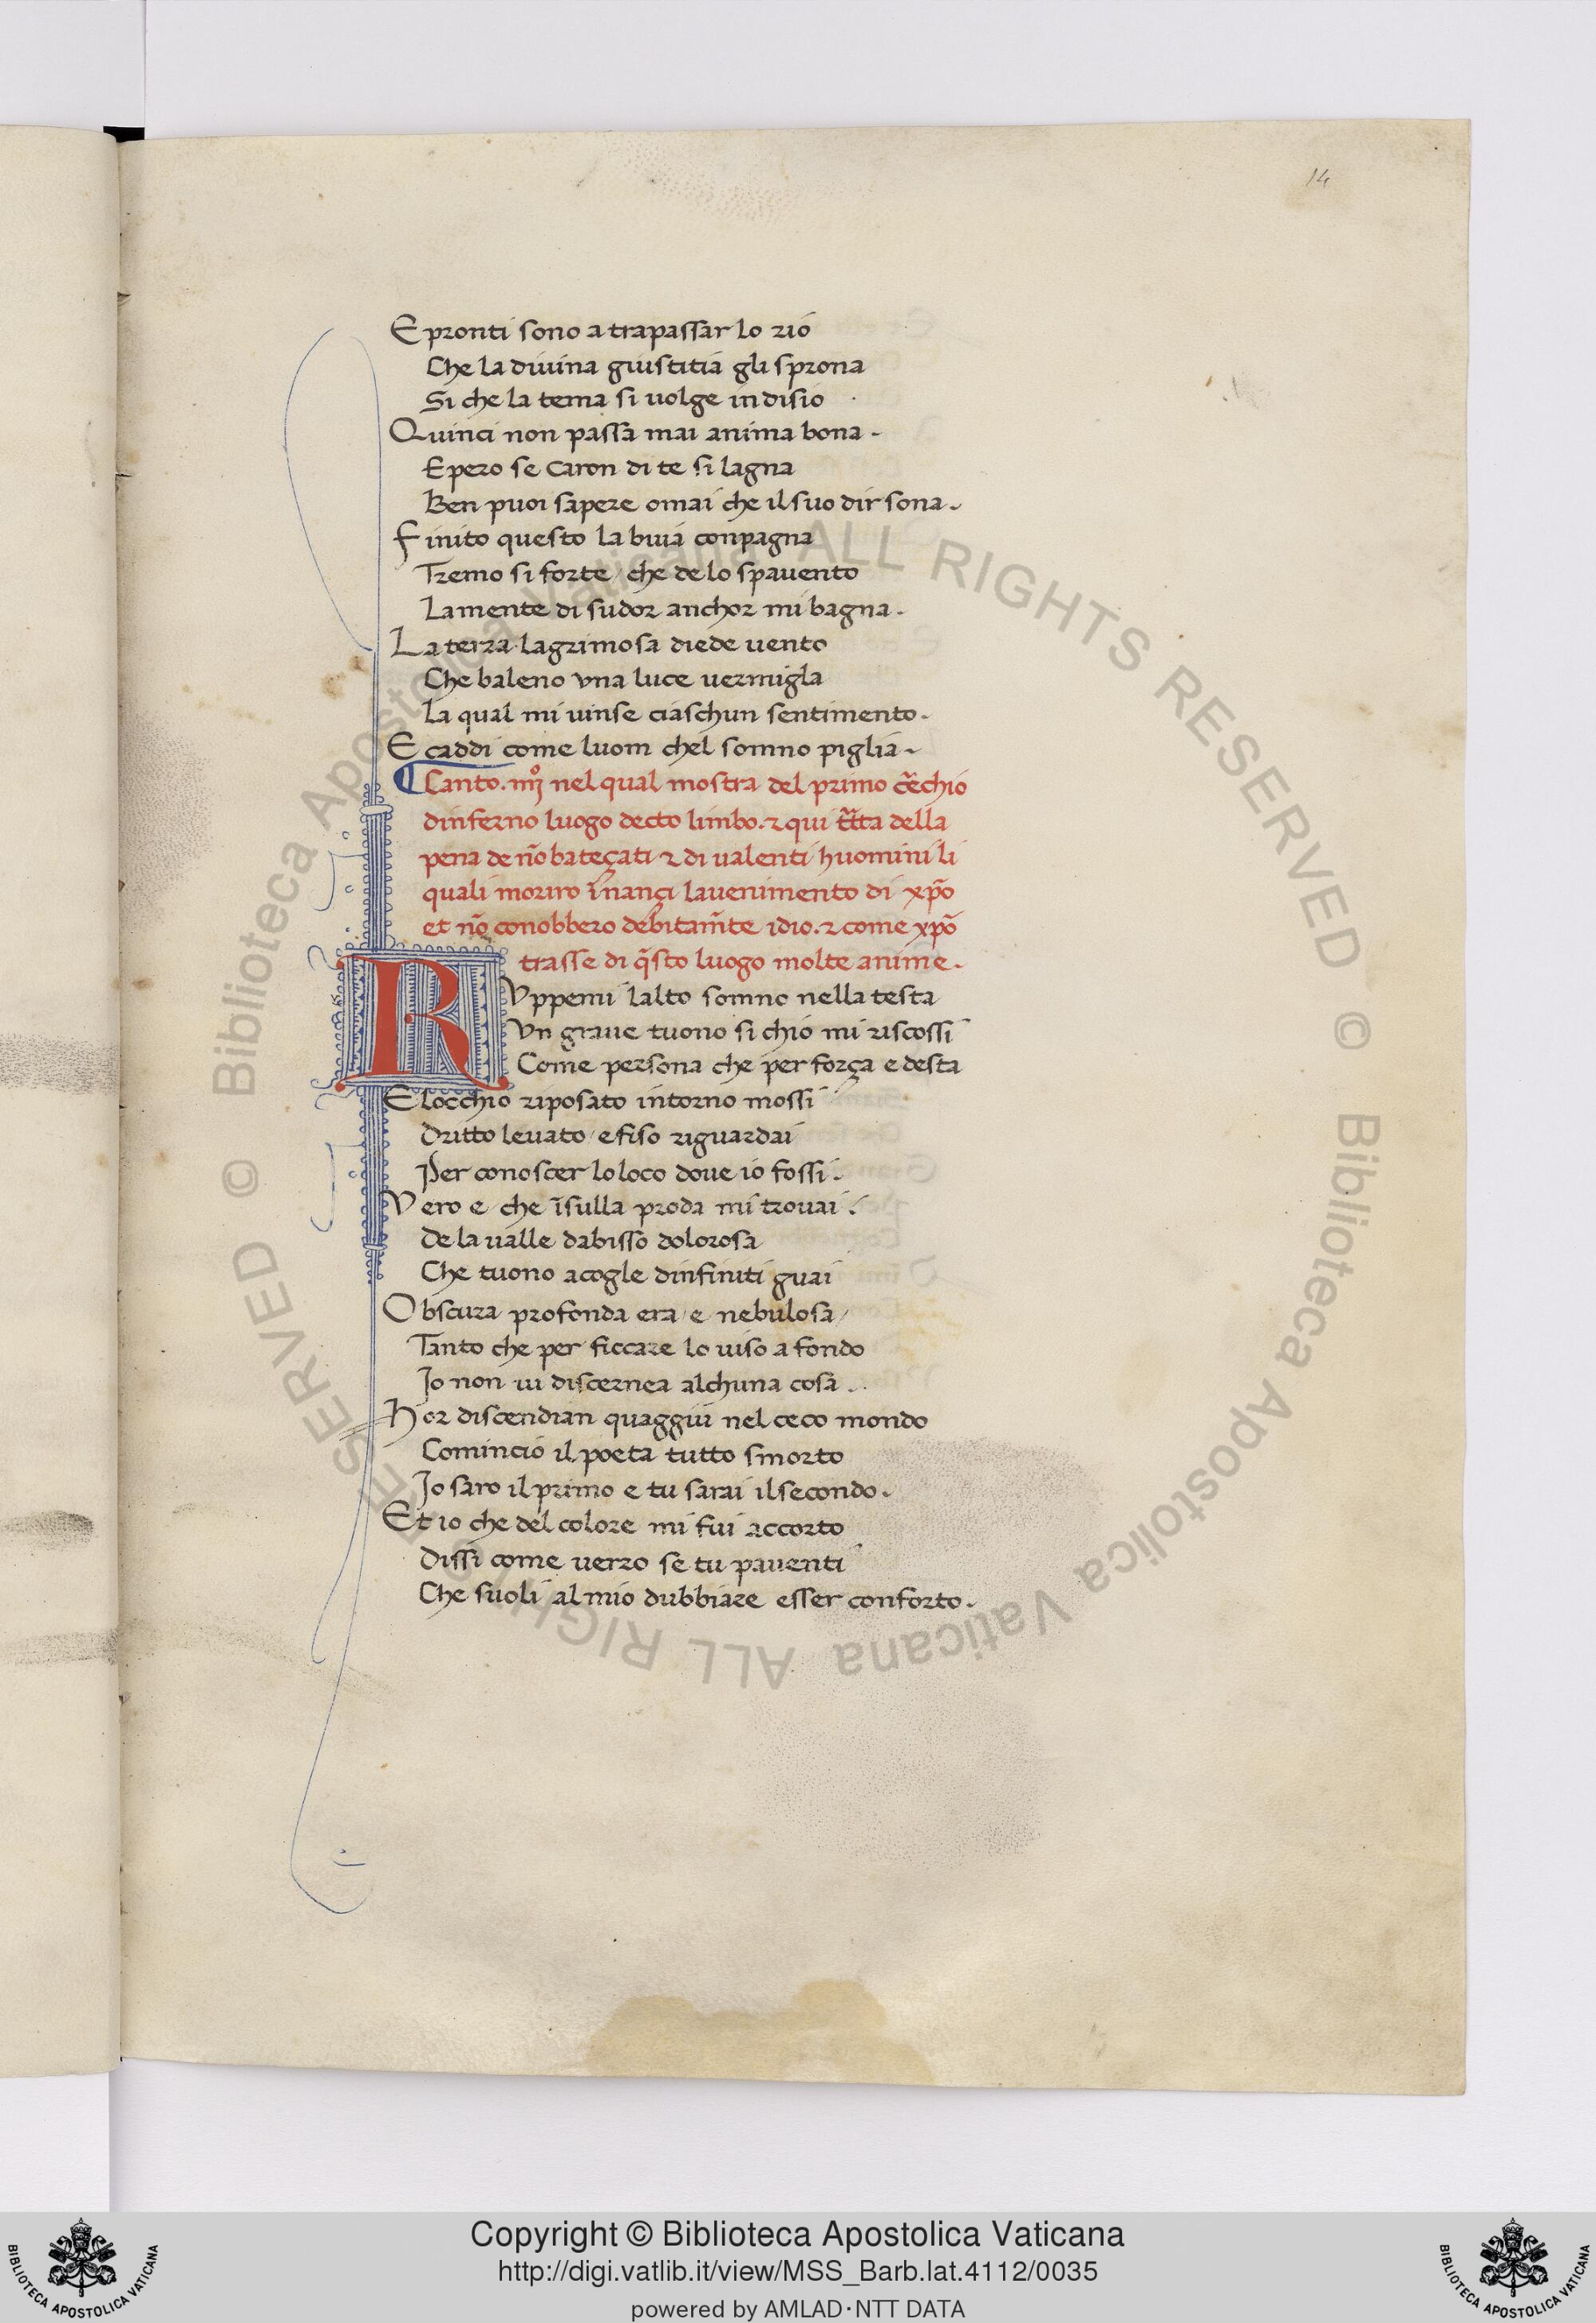 14
E pronti sono a trapassar lo rio
Che la diuina giustitia gli sprona
Si che la tema si uolge in disio
Quinci non passa mai anima bona.
E pero se Caron di te si lagna
Ben puoi sapere omai che il suo dir sona.
Finito questo la buia conpagna
Tremo si forte / che de lo spauento
La mente di sudor anchor mi bagna.
La terra lagrimosa diede uento
Che baleno vna luce uermigla
La qual mi uinse ciaschun sentimento.
E caddi come luom chel somno piglia.
¶ Canto. iiijº nel qual mostra del primo c̃echio
dinferno luogo decto limbo. ⁊ qui t̃tta della
pena de nõ bateçati ⁊ di ualenti huomini li
quali moriro ĩnançi lauenimento di xp̃o
et nõ conobbero debitam̃te idio. ⁊ come xp̃o
trasse di q̃sto luogo molte anime.
RVppemi lalto somno nella testa
Vn graue tuono si chio mi riscossi
Come persona che per força e desta
E locchio riposato intorno mossi
Dritto leuato / e fiso riguardai
Per conoscer lo loco doue io fossi.
Vero e che ĩsulla proda mi trouai.
De la ualle dabisso dolorosa
Che tuono acogle dinfiniti guai
Obscura profonda era / e nebulosa /
Tanto che per ficcare lo uiso a fondo
Io non ui discernea alchuna cosa.
Hor discendian quaggiu nel ceco mondo
Comincio il poeta tutto smorto
Io saro il primo e tu sarai il secondo.
Et io che del colore mi fui accorto
Dissi come uerro se tu pauenti
Che suoli al mio dubbiare esser conforto.
© Biblioteca Apostolica Vaticana ALL RIGHTS RESERVED
© Biblioteca Apostolica Vaticana ALL RIGHTS RESERVED
Copyright © Biblioteca Apostolica Vaticana
http://digi.vatlib.it/view/MSS_Barb.lat.4112/0035
powered by AMLAD·NTT DATA
BIBLIOTECA APOSTOLICA VATICANA
BIBLIOTECA APOSTOLICA VATICANA